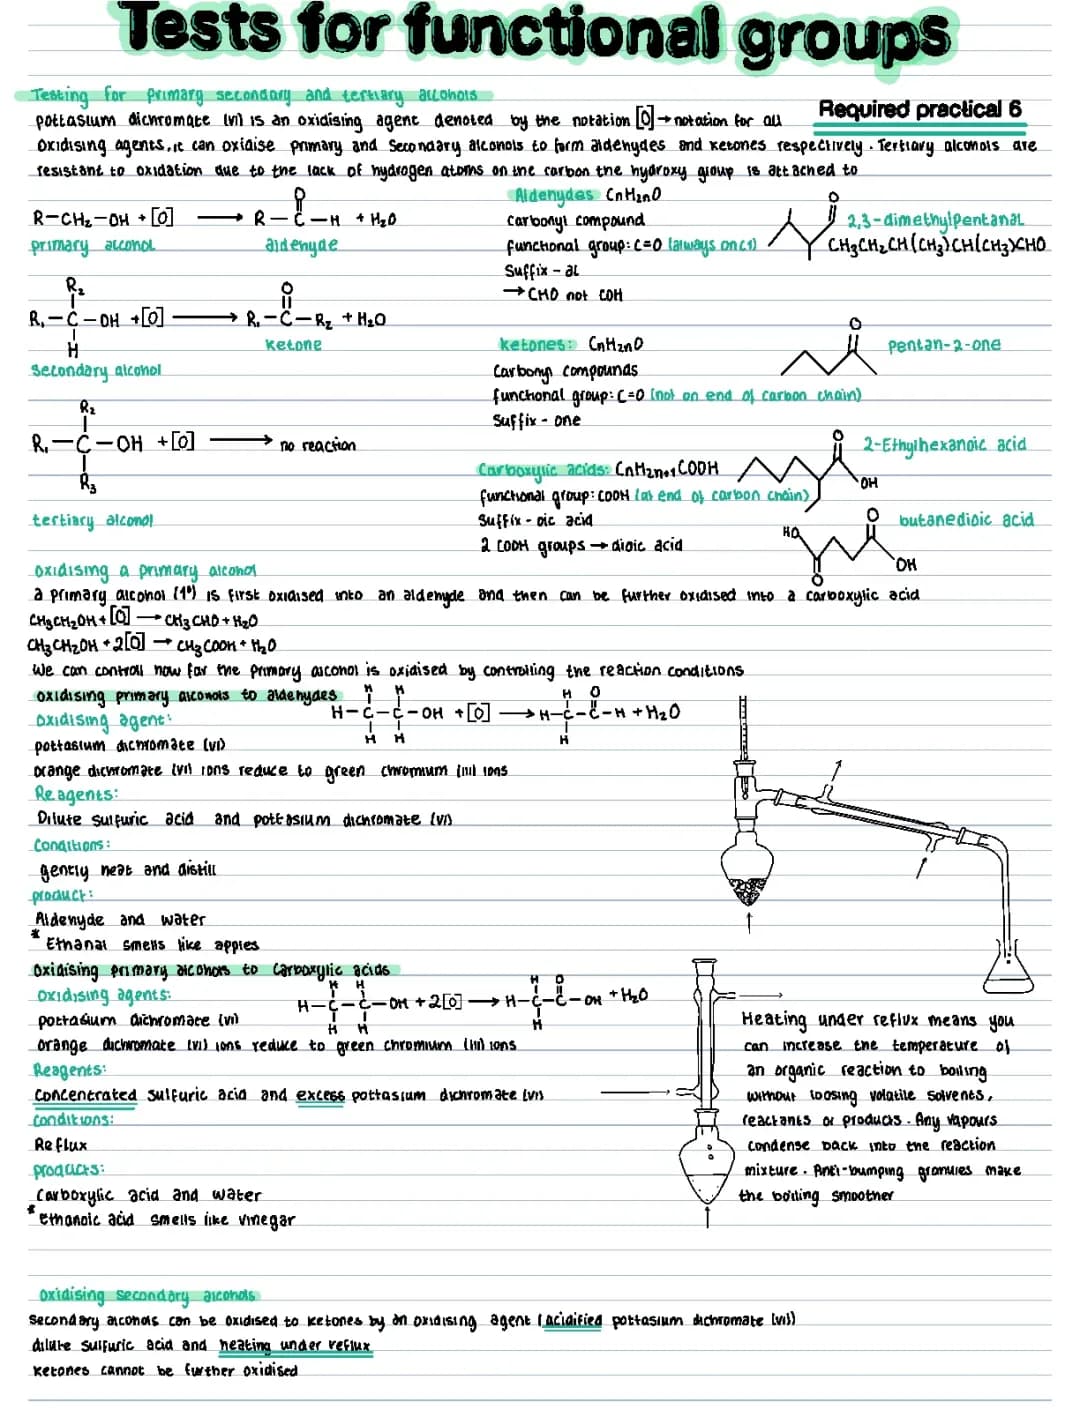 Tests for functional groups
Testing for primary secondary and tertiary alcohols
Required practical 6
pottasium dichromate (vi) is an oxidising agent denoted by the notation [O] → notation for all
oxidising agents, it can oxidise primary and secondary alcohols to form aldehydes and ketones respectively. Tertiary alcohols are
resistant to oxidation due to the lack of hydrogen atoms on the carbon the hydroxy group is attached to
R-CH₂-OH + [O] → R-C-H + H₂O
O
primary alcohol
aldehyde
R₂
R₁-C-OH + [O] → R₁-C-R₂ + H₂O
H
O
ketone
secondary alcohol
R₂
R₁-C-OH + [O] → no reaction
R₃
tertiary alcohol
Aldehydes CnH2nO
carbonyl compound
functional group: C=O (always on c1)
Suffix - al
→ CHO not COH
O
2,3-dimethylpentanal
CH₃CH₂CH(CH₃)CH(CH₃)CHO
ketones: CnH2nO
Carbonyl compounds
functional group: C=O (not on end of carbon chain)
Suffix - one
O
pentan-2-one
Carboxylic acids: CnH2n+1COOH
functional group: COOH (at end of carbon chain)
Suffix - oic acid
2 COOH groups → dioic acid
O
OH
2-Ethylhexanoic acid
HO
O
O
OH
butanedioic acid
oxidising a primary alcohol
a primary alcohol (1°) is first oxidised into an aldehyde and then can be further oxidised into a carboxylic acid
CH₃CH₂OH + [O] → CH₃CHO + H₂O
CH₃CH₂OH + 2[O] → CH₃COOH + H₂O
We can controll how far the primary alcohol is oxidised by controlling the reaction conditions
oxidising primary alcohols to aldehydes
H H
H-C-C-OH + [O] → H-C-C-H + H₂O
H H
H O
H
oxidising agent:
pottasium dichromate (vi)
orange dichromate (vi) ions reduce to green chromium (iii) ions
Reagents:
Dilute sulfuric acid and pottasium dichromate (vi)
Conditions:
gently heat and distill
product:
Aldehyde and water
* Ethanal smells like apples
Oxidising primary alcohols to Carboxylic acids
H H
H-C-C-OH + 2[O] → H-C-C-OH + H₂O
H H
H O
H
oxidising agents:
pottasium dichromate (vi)
orange dichromate (vi) ions reduce to green chromium (iii) ions
Reagents:
Concentrated sulfuric acid and excess pottasium dichromate (vi)
conditions:
Reflux
products:
Carboxylic acid and water
* ethanoic acid smells like vinegar
Heating under reflux means you
can increase the temperature of
an organic reaction to boiling
without loosing volatile solvents,
reactants or products. Any vapours
condense back into the reaction
mixture. Anti-bumping granules make
the boiling smoother
oxidising secondary alcohols
Secondary alcohols can be oxidised to ketones by an oxidising agent (acidified pottasium dichromate (vi))
dilute sulfuric acid and heating under reflux
ketones cannot be further oxidised